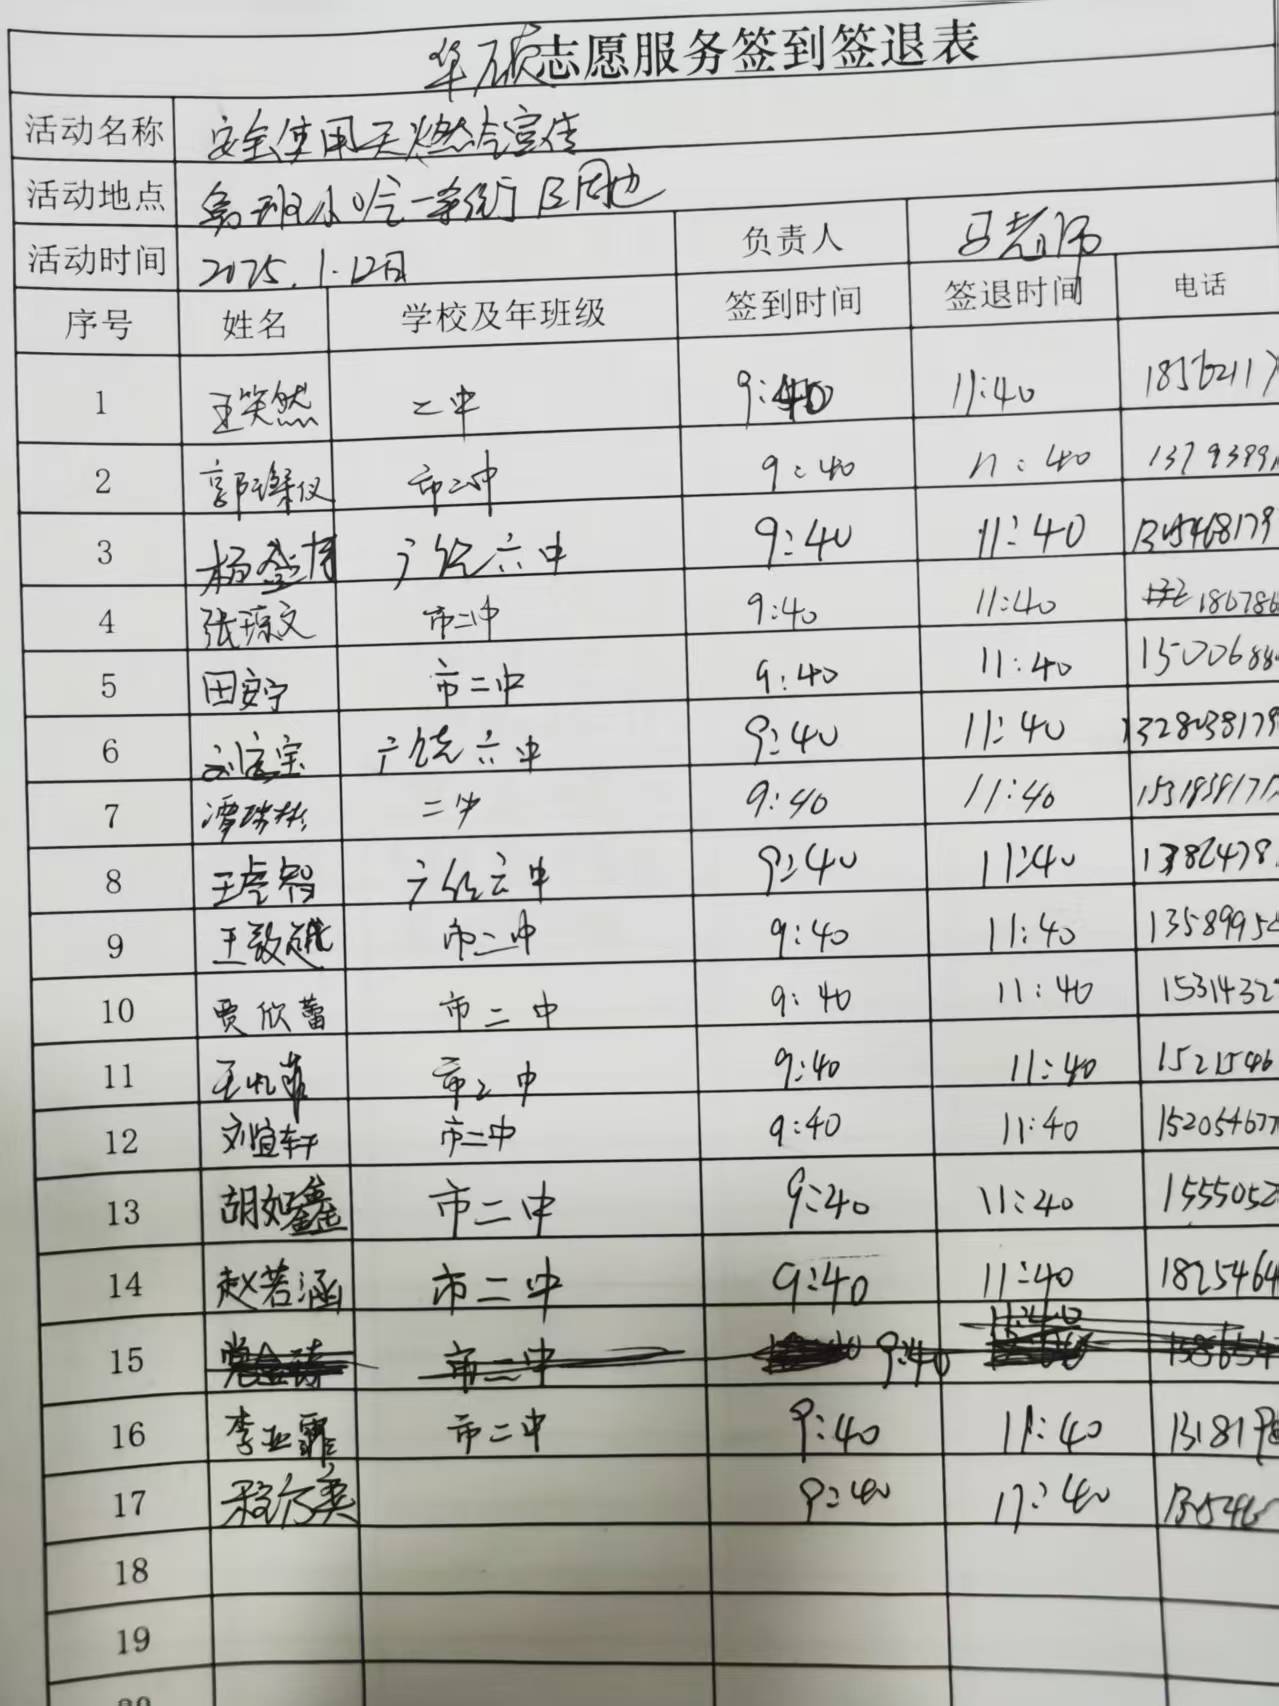 华硕志愿服务签到签退表
活动名称 安全使用天燃气宣传
活动地点 鲁班小吃一条街及周边
活动时间 2025.1.12日 负责人 马老师
序号 姓名 学校及年班级 签到时间 签退时间 电话
1 王笑然 二中 9:40 11:40 18562117
2 郭璨仪 市二中 9:40 11:40 1379399
3 杨 广饶六中 9:40 11:40 1345468179
4 张琼文 市二中 9:40 11:40 186786
5 田安宁 市二中 9:40 11:40 1500688
6 刘宝 广饶六中 9:40 11:40 1328038179
7 谭 二中 9:40 11:40 153183917
8 王智 广饶六中 9:40 11:40 1386478
9 王敦 市二中 9:40 11:40 1358995
10 贾欣蕾 市二中 9:40 11:40 1531432
11 王 市二中 9:40 11:40 1521546
12 刘宜轩 市二中 9:40 11:40 152054677
13 胡如鑫 市二中 9:40 11:40 1555052
14 赵若涵 市二中 9:40 11:40 1825464
15 市二中 9:40 11:40 158654
16 李亚霏 市二中 9:40 11:40 131819
17 9:40 11:40 130546
18
19
20